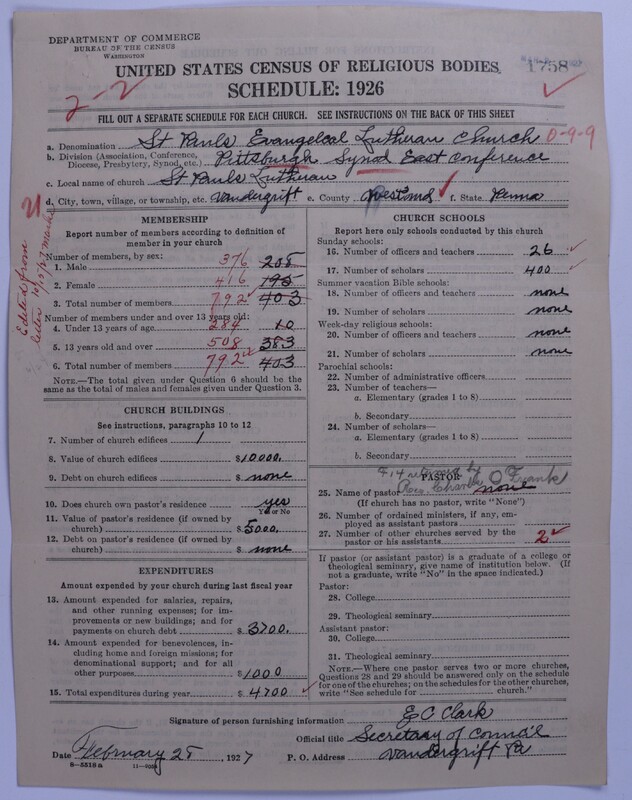 DEPARTMENT OF COMMERCE
BUREAU OF THE CENSUS
WASHINGTON
1758
UNITED STATES CENSUS OF RELIGIOUS BODIES
SCHEDULE: 1926
2-2
FILL OUT A SEPARATE SCHEDULE FOR EACH CHURCH. SEE INSTRUCTIONS ON THE BACK OF THIS SHEET
a. Denomination St Pauls Evangelcal Lutheran Church 0-9-9
b. Division (Association, Conference, Diocese, Presbytery, Synod, etc.) Pittsburgh Synod East Conference
c. Local name of church St Pauls Lutheran
d. City, town, village, or township, etc. Vandergrift e. County Westmd f. State Penna
Edited from letter 10/13/27
MEMBERSHIP
Report number of members according to definition of
member in your church
Number of members, by sex:
1. Male 376 208
2. Female 416 195
3. Total number of members 792 403
Number of members under and over 13 years old:
4. Under 13 years of age 284 10
5. 13 years old and over 508 383
6. Total number of members 792 403
NOTE.—The total given under Question 6 should be
same as the total of males and females given under Question 3.
CHURCH BUILDINGS
See instructions, paragraphs 10 to 12
7. Number of church edifices 1
8. Value of church edifices $10000.
9. Debt on church edifices $ none
10. Does church own pastor's residence yes
Yes or No
11. Value of pastor's residence (if owned by
church) $5000.
12. Debt on pastor's residence (if owned by
church) $ none
EXPENDITURES
Amount expended by your church during last fiscal year
13. Amount expended for salaries, repairs,
and other running expenses; for im-
provements or new buildings; and for
payments on church debt $3700.
14. Amount expended for benevolences, in-
cluding home and foreign missions; for
denominational support; and for all
other purposes $1000
15. Total expenditures during year $4700
CHURCH SCHOOLS
Report here only schools conducted by this church
Sunday schools:
16. Number of officers and teachers 26
17. Number of scholars 400
Summer vacation Bible schools:
18. Number of officers and teachers none
19. Number of scholars none
Week-day religious schools:
20. Number of officers and teachers none
21. Number of scholars none
Parochial schools:
22. Number of administrative officers
23. Number of teachers—
a. Elementary (grades 1 to 8)
b. Secondary
24. Number of scholars—
a. Elementary (grades 1 to 8)
b. Secondary
PASTOR
25. Name of pastor Rev. Charles O Frank none
(If church has no pastor, write "None")
26. Number of ordained ministers, if any, em-
ployed as assistant pastors
27. Number of other churches served by the
pastor or his assistants 2
If pastor (or assistant pastor) is a graduate of a college or
theological seminary, give name of institution below. (If
not a graduate, write "No" in the space indicated.)
Pastor:
28. College
29. Theological seminary
Assistant pastor:
30. College
31. Theological seminary
NOTE.—Where one pastor serves two or more churches,
Questions 28 and 29 should be answered only on the schedule
for one of the churches; on the schedules for the other churches,
write "See schedule for church."
Signature of person furnishing information E C Clark
Official title Secretary of Council
Date February 28, 1927 P. O. Address Vandergrift Pa
8—5518a